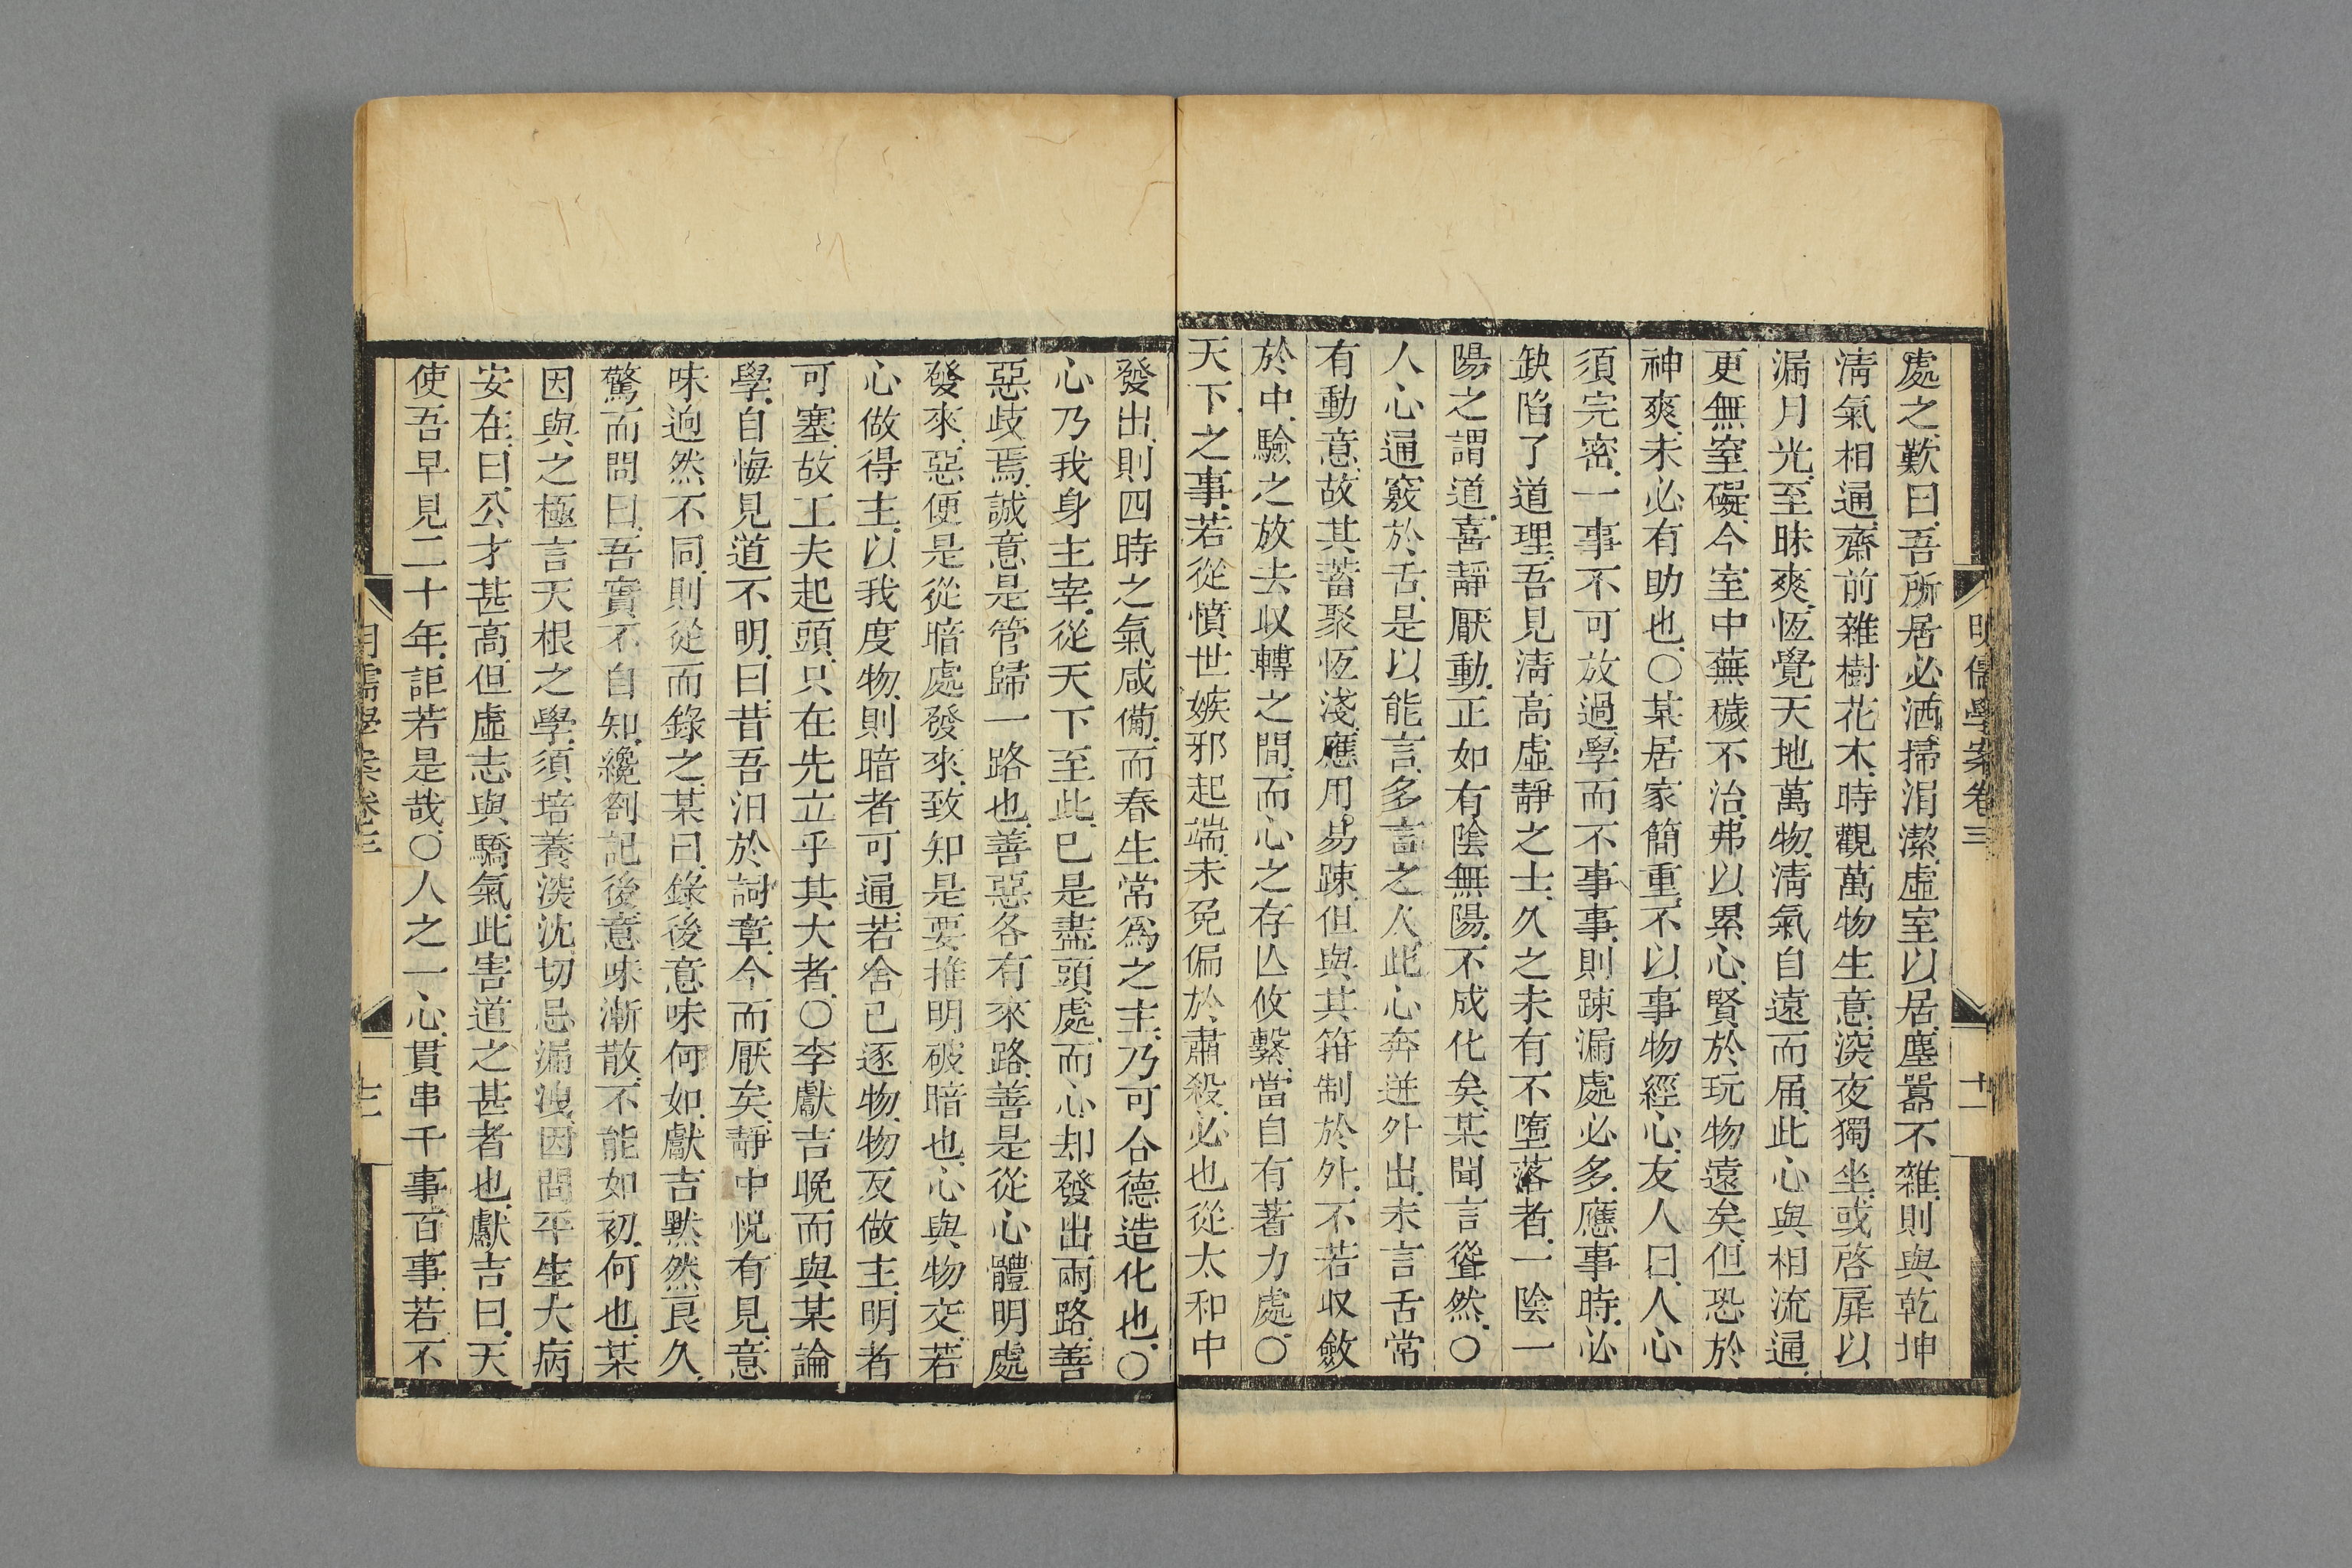 明儒學案卷三 十一
處之歎曰吾所居必洒掃涓潔虛室以居塵囂不雜則與乾坤
淸氣相通齋前雜樹花木時觀萬物生意深夜獨坐或啓扉以
漏月光至昧爽恆覺天地萬物淸氣自遠而届此心與相流通
更無窒礙今室中蕪穢不治弗以累心賢於玩物遠矣但恐於
神爽未必有助也○某居家簡重不以事物經心友人曰人心
須完密一事不可放過學而不事事則踈漏處必多應事時必
缺陷了道理吾見淸高虛靜之士久之未有不墮落者一陰一
陽之謂道喜靜厭動正如有陰無陽不成化矣某聞言聳然○
人心通竅於舌是以能言多言之人此心奔迸外出未言舌常
有動意故其蓄聚恆淺應用易踈但與其箝制於外不若収斂
於中驗之放去収轉之間而心之存亾攸繫當自有著力處○
天下之事若從憤世嫉邪起端未免偏於肅殺必也從太和中
發出則四時之氣咸僃而春生常爲之主乃可合德造化也○
心乃我身主宰從天下至此已是盡頭處而心却發出兩路善
惡歧焉誠意是管歸一路也善惡各有來路善是從心體明處
發來惡便是從暗處發來致知是要推明破暗也心與物交若
心做得主以我度物則暗者可通若舍已逐物物反做主明者
可塞故工夫起頭只在先立乎其大者○李獻吉晚而與某論
學自悔見道不明曰昔吾汨於詞章今而厭矣靜中恍有見意
味逈然不同則從而錄之某曰錄後意味何如獻吉默然良久
驚而問曰吾實不自知纔劄記後意味漸散不能如初何也某
因與之極言天根之學須培養深沈切忌漏洩因問平生大病
安在曰公才甚高但虛志與驕氣此害道之甚者也獻吉曰天
使吾早見二十年詎若是哉○人之一心貫串千事百事若不
明儒學案卷三 十二